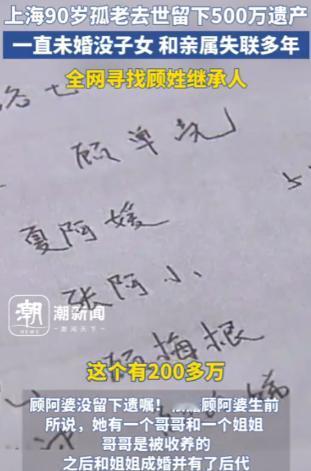 上海90岁孤老去世留下500万遗产
一直未婚没子女 和亲属失联多年
全网寻找顾姓继承人
顾单亮
夏阿媛
张阿小
潮 潮新闻
顾梅根
这个有200多万
顾阿婆没留下遗嘱！顾阿婆生前
所说，她有一个哥哥和一个姐姐
哥哥是被收养的
之后和姐姐成婚并有了后代